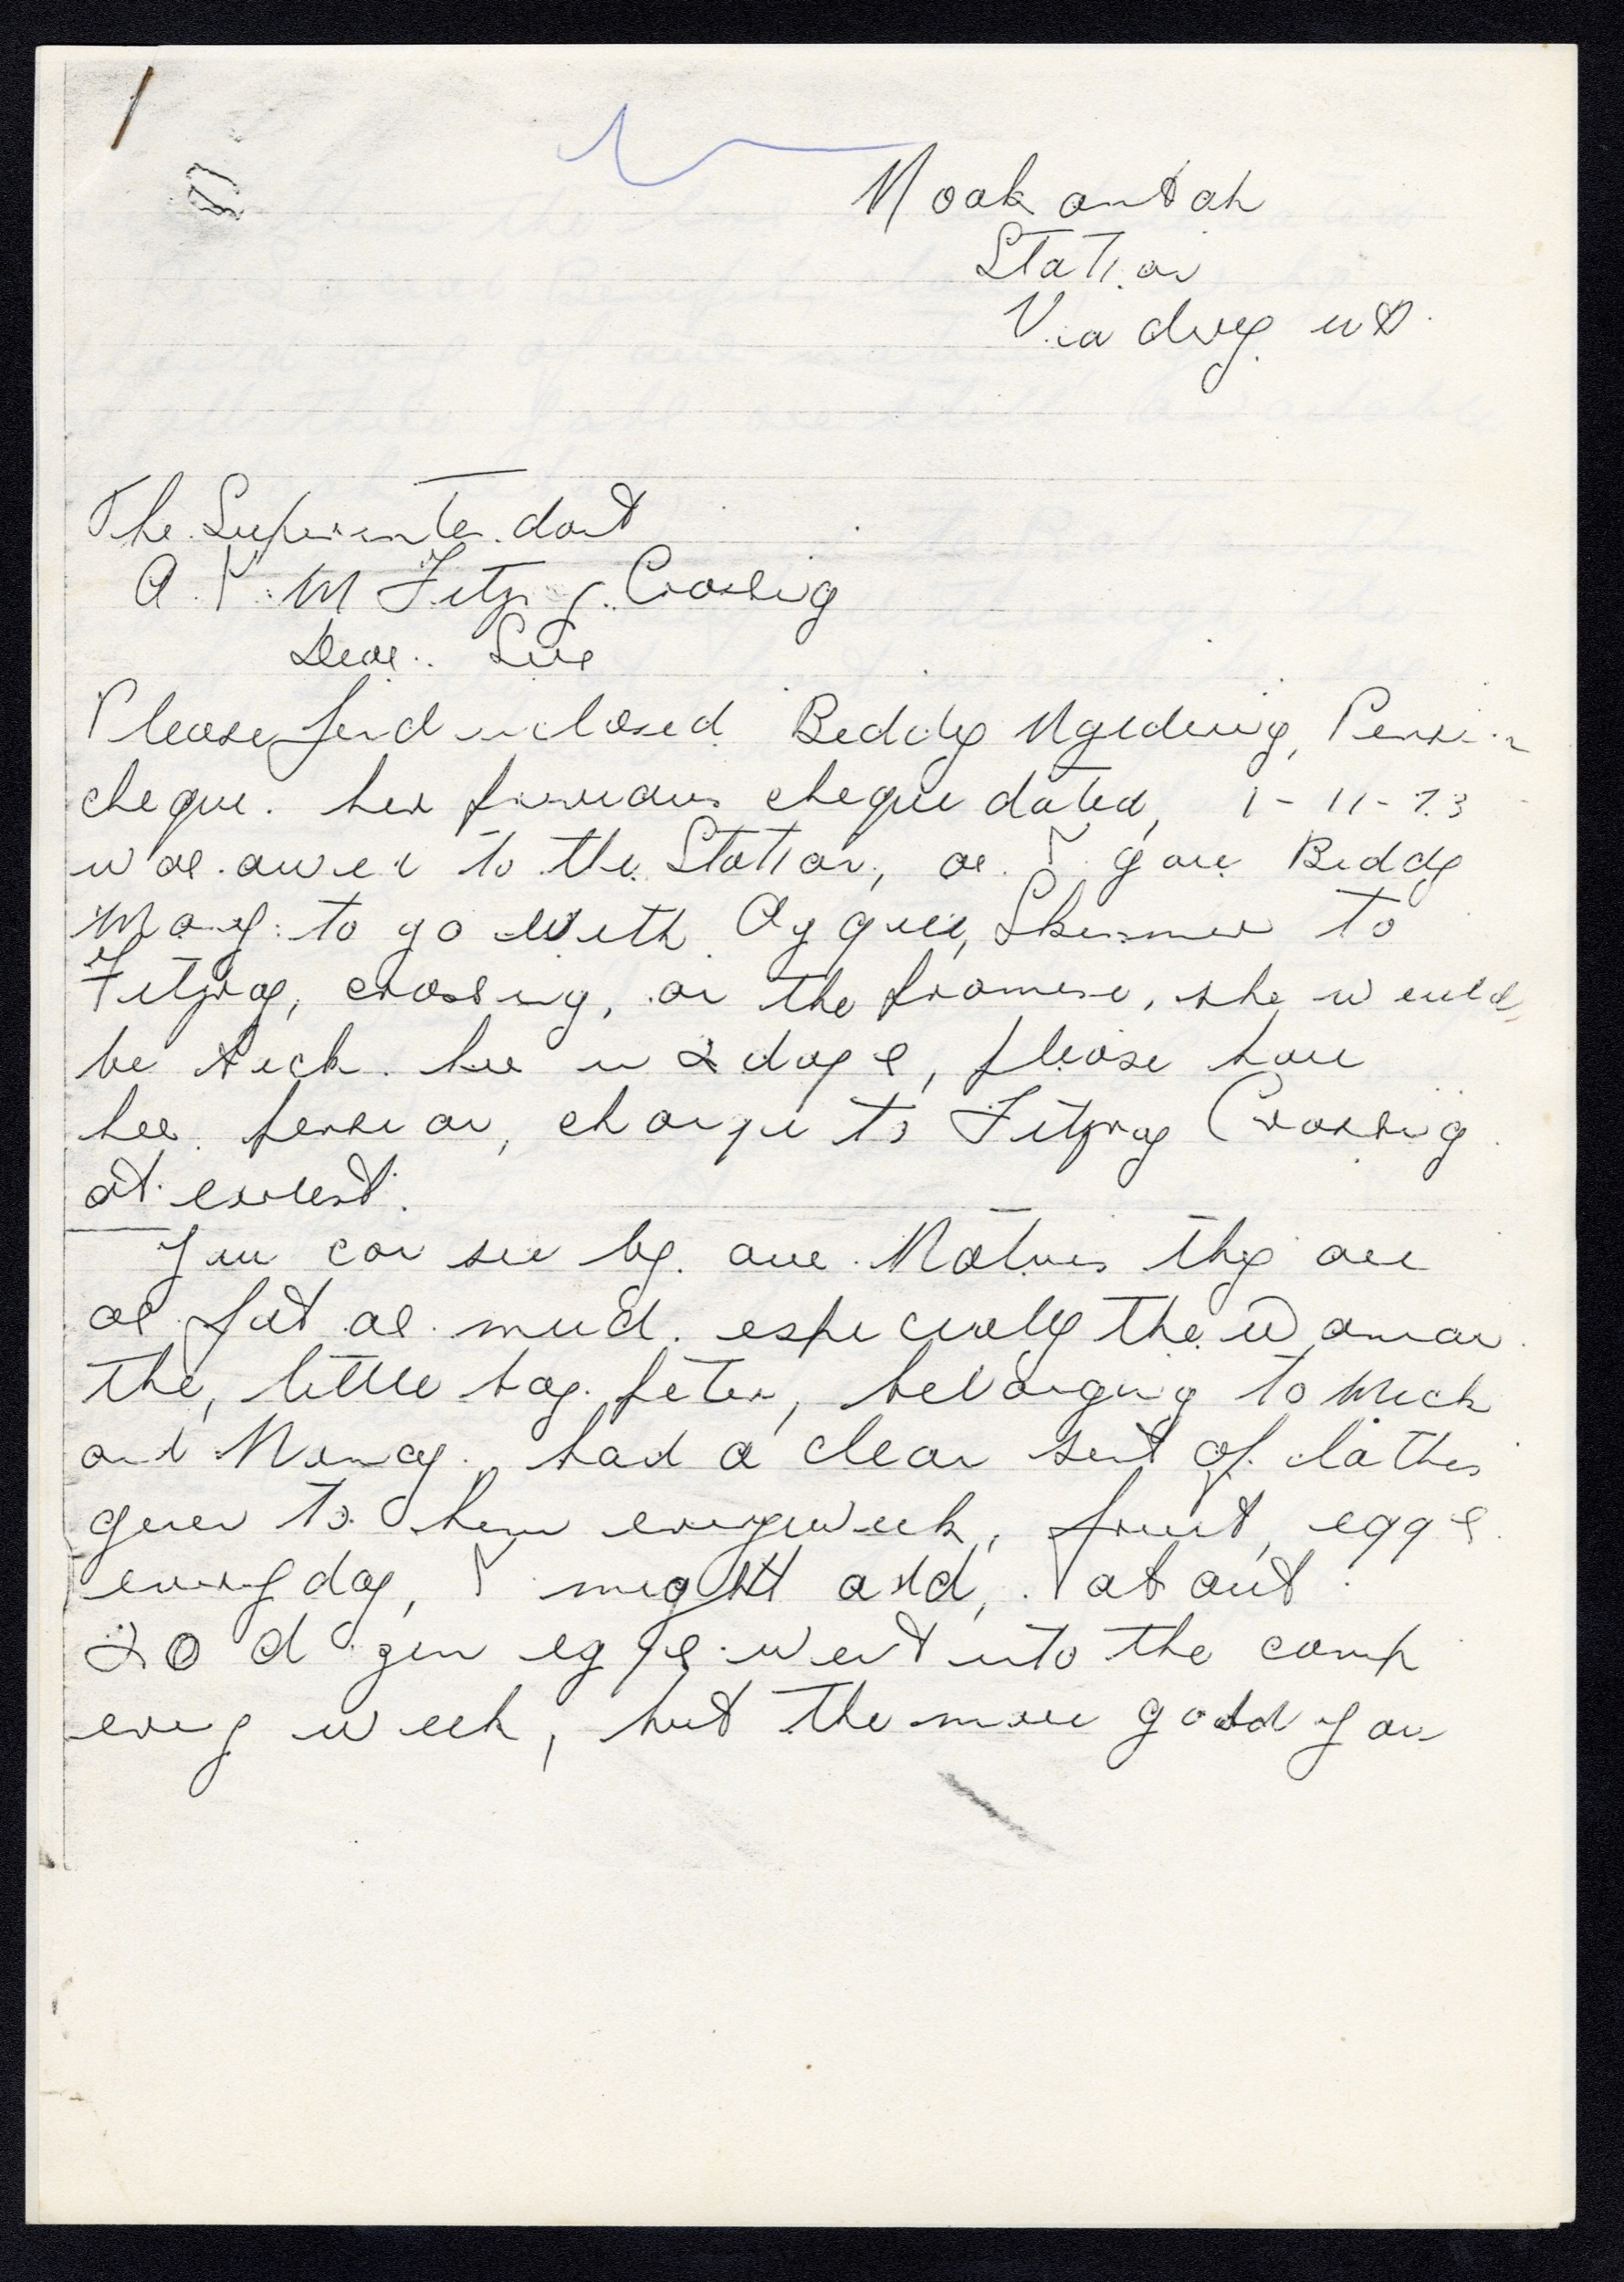 Nookantah
Station
Via derby wA.
The Superintendant
A. I. M Fitzroy Crossing
Dear. Sir
Please find inclosed Biddy Pension
cheque. her previous cheque dated, 1-11-73
was to the Station, as I gave Biddy
Money to go with Skinner to
Fitzroy, crossing, on the promise, she would
be back. here in 2 days, please have
her. pension, change to Fitzroy Crossing
at
You can see by. our Natives they are
as fat as mud. especially the Woman
the, little boy. peter, belonging to Mick
and Nancy. had a clean set of clothes
given to him everyweek, fruit, eggs.
everyday, I might add, about
20 dozen eggs went into the camp
every week, but the more good you